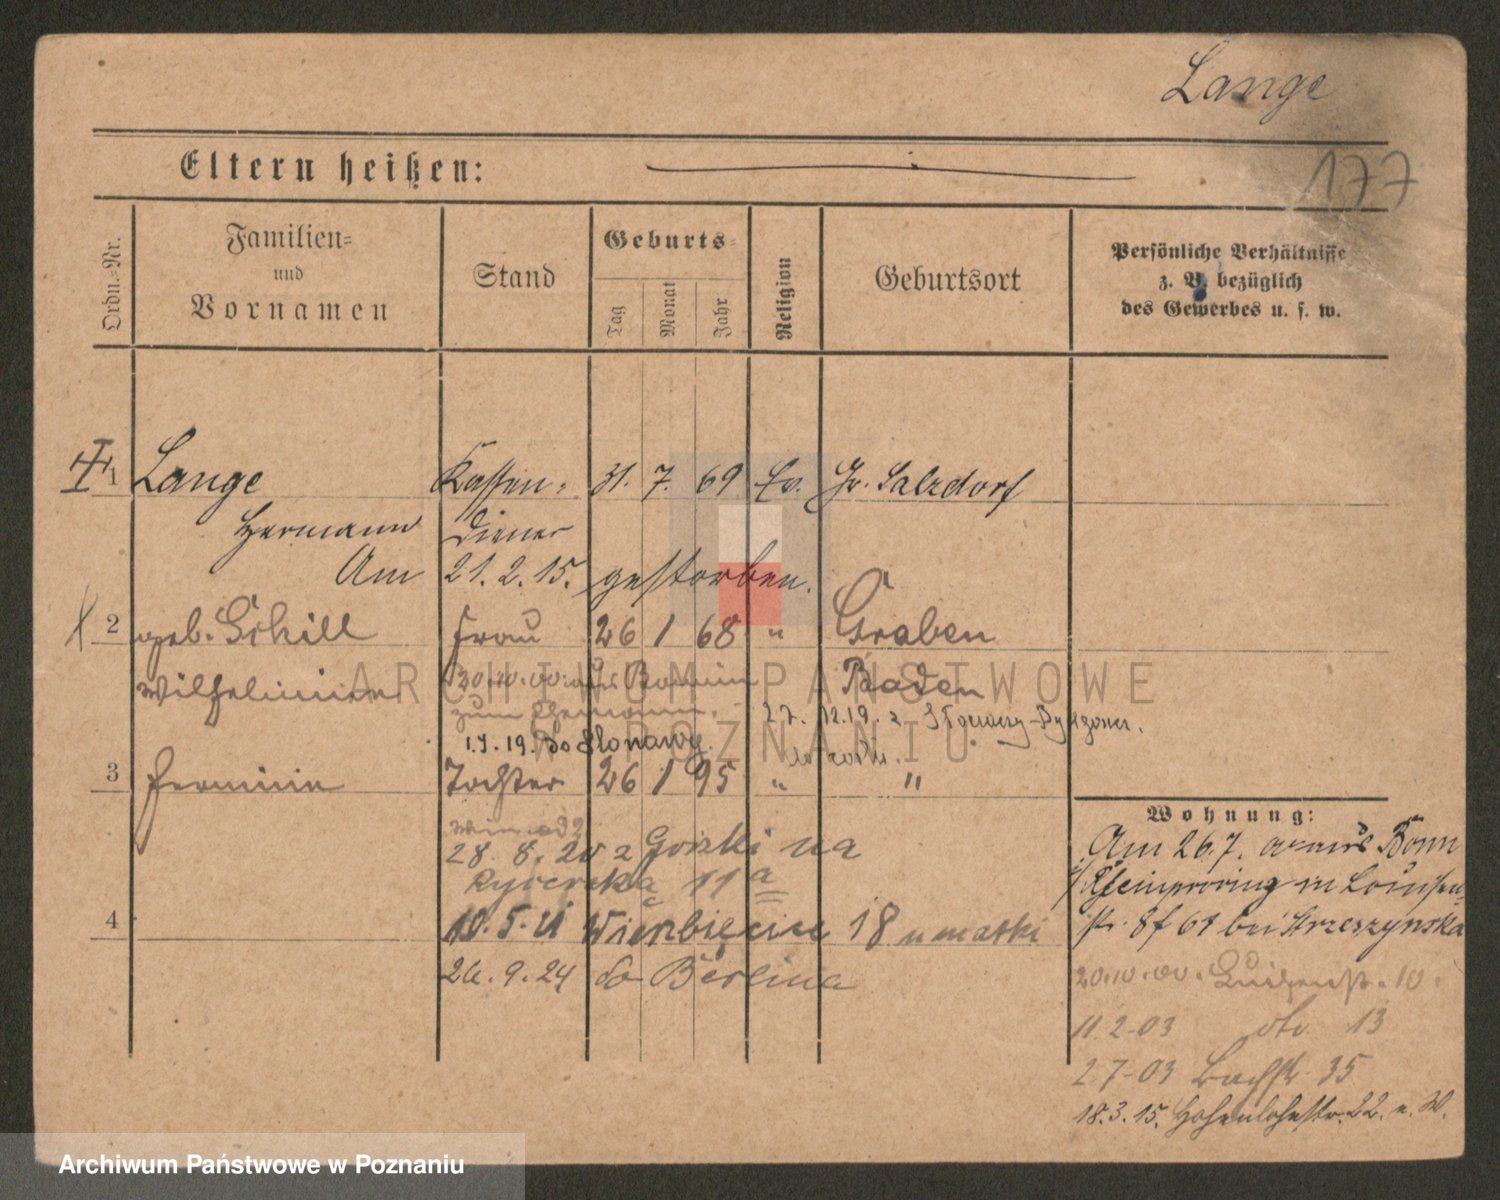 Lange
177
Eltern heißen:
Ordn.-Nr.
Familien-
und
Vornamen
Stand
Geburts-
Tag
Monat
Jahr
Religion
Geburtsort
Persönliche Verhältnisse
z. B. bezüglich
des Gewerbes u. s. w.
1 Lange Kassen- 31. 7. 69 Ev. Gr. Salzdorf
Hermann Diener
Am 21.2.15. gestorben.
2 geb. Schill Frau 26 1 68 " Graben
Wilhelmine 20.10.00. aus Baden
zum Ehemann. 27. 12.19. z
1.7.19. Do
3 Hermine Tochter 26 1 95 " "
28. 8. 20 z Gorzki na
Rycerska 11a
4 10.5.21 Wierzbięcice 18 u matki
26.9.24 do Berlina
Wohnung:
Am 26.7. aus Bonn
Rheinprovinz in Louisen-
str. 8 bei Strzeszynska
20.10.00. Luisenstr. 10.
11.2-03 dto 13
2.7-03 Bachstr. 35
18.3.15. Hohenlohestr. 22. n. W.
ARCHIWUM PAŃSTWOWE
W POZNANIU
Archiwum Państwowe w Poznaniu